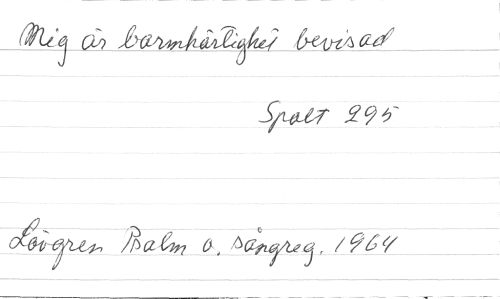 Mig är barmhärtighet bevisad
Spalt 295
Lövgren Psalm o. sångreg. 1964